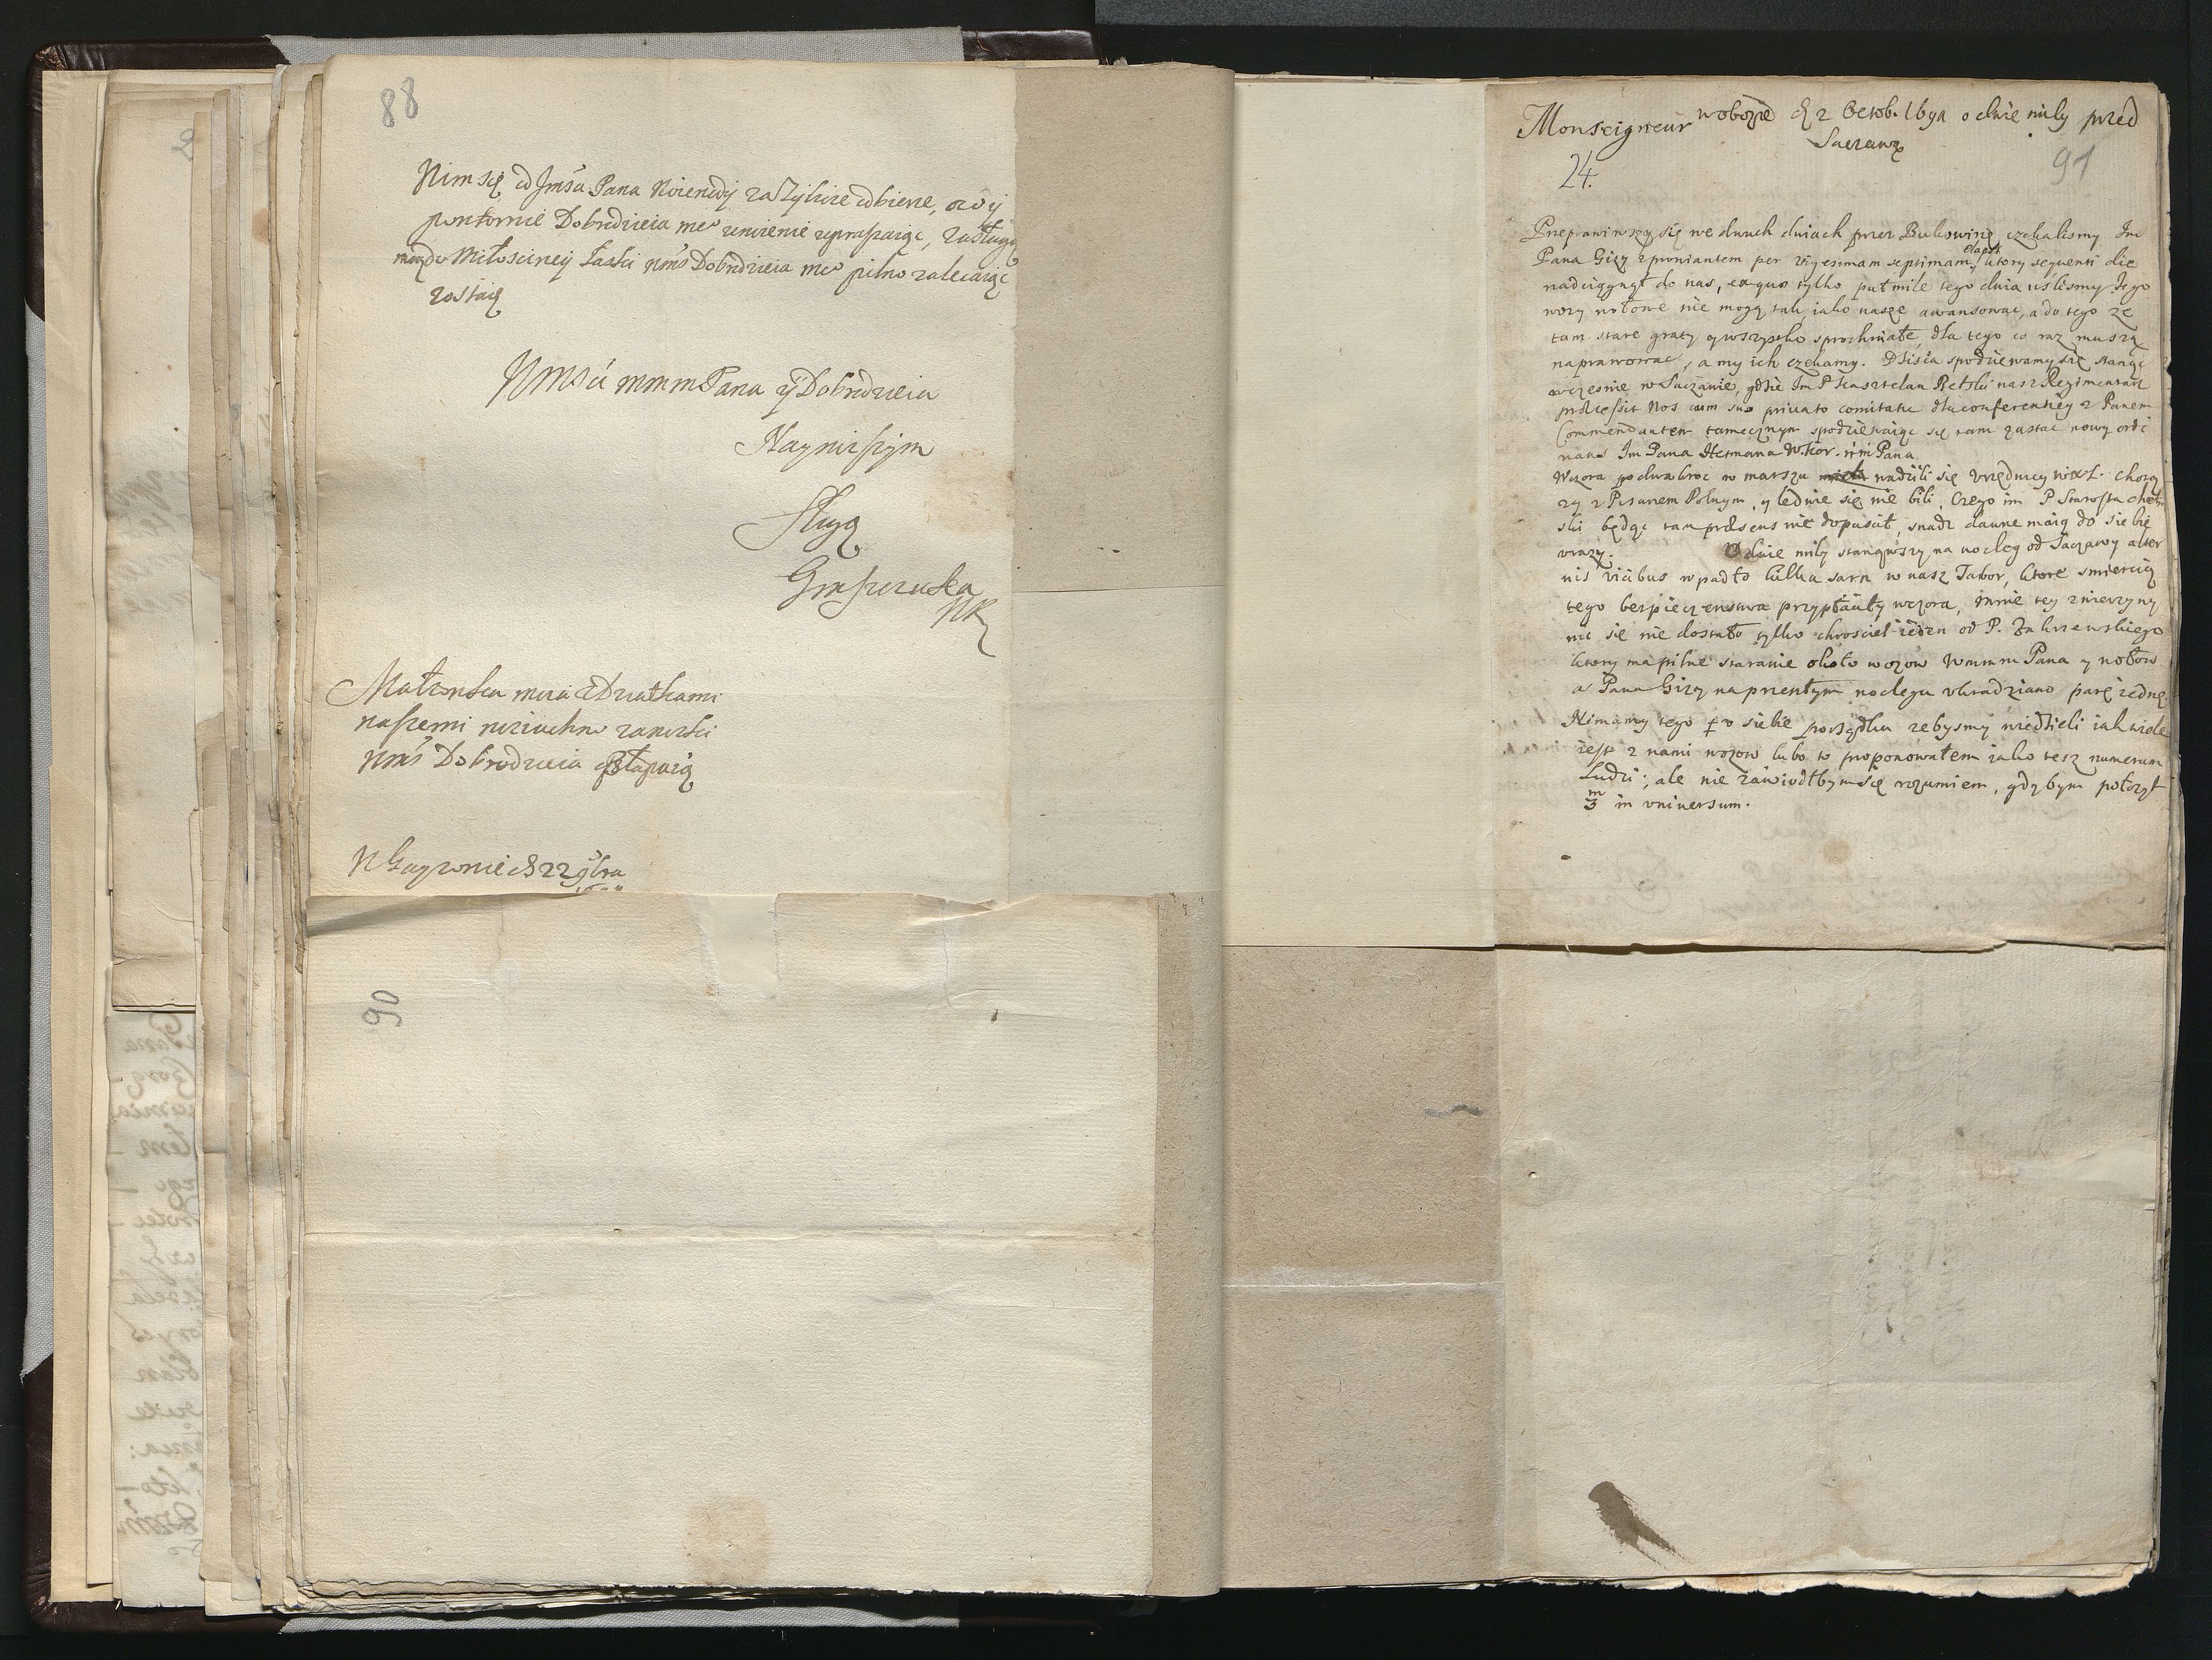 88
Nim się od Jmści Pana
powtornie Dobrodzieia meo uniżenie upraszaiąc, zasługi
Miłosciwey Łaski Wmści Dobrodzieia meo pilno zalecaiąc
zostaię
Wmści mmm Pana y Dobrodzieia
Nayniższym
Sługą
Małzonka moia z Dziatkami
naszemi
Wmści Dobrodzieia
22
90
Monseigneur w obozie d 2 Octob. 1691 o dwie mily przed
Suczawą
24.
91
Przeprawiwszy się we dwuch dniach przez Bukowinę czekalismy Im
Pana Gizy z prowiantem per vigesimam septimam, ktory sequenti die
nadciągnął do nas, ex quo tylko puł mile tego dnia uszlismy. Jego
wozy wołowe nie mogą tak iako nasze awansować, a do tego ze
tam stare graty y wszystko sprochniałe, dla tego co raz muszą
naprawować, a my ich czekamy. Dzisia spodziewamy się stanąć
wczesnie w Suczawie, gdzie Im P Kasztelan Bełzki nasz Regimentarz
præcessit nos cum suo privato comitatu dla conferentiey z Panem
Commendantem tamecznym spodziewaiąc się tam zastać nowy ordi
nans Im Pana Hetmana W. Kor. mm Pana
Wczora po dwakroc w marszu wadzili się Urzędnicy woysk. chorą
zy z Pisarzem Polnym, y ledwie się nie bili, czego im P Starosta chełm
ski będąc tam præsens nie dopuscił, snadz dawne maią do siebie
urazy. O dwie mily stanąwszy na nocleg od Suczawy alter
nis vicibus wpadło kilka sarn w nasz Tabor, ktore smiercią
tego bespieczenstwa przypłaciły wczora, mnie tey zwierzyny
nic się nie dostało tylko chrosciel ieden od P. Zakrzewskiego
ktory ma pilne staranie około wozow Wmmm Pana y wołow
a Pana Gizy na przeszłym noclegu ukradziano parę iedną.
Nimamy tego u siebie porządku zebysmy wiedzieli iak wiele
iest z nami wozow lubo to proponowałem iako tesz numerum
Ludzi; ale nie zawiodłbym się rozumiem, gdybym połozył
3 in universum.